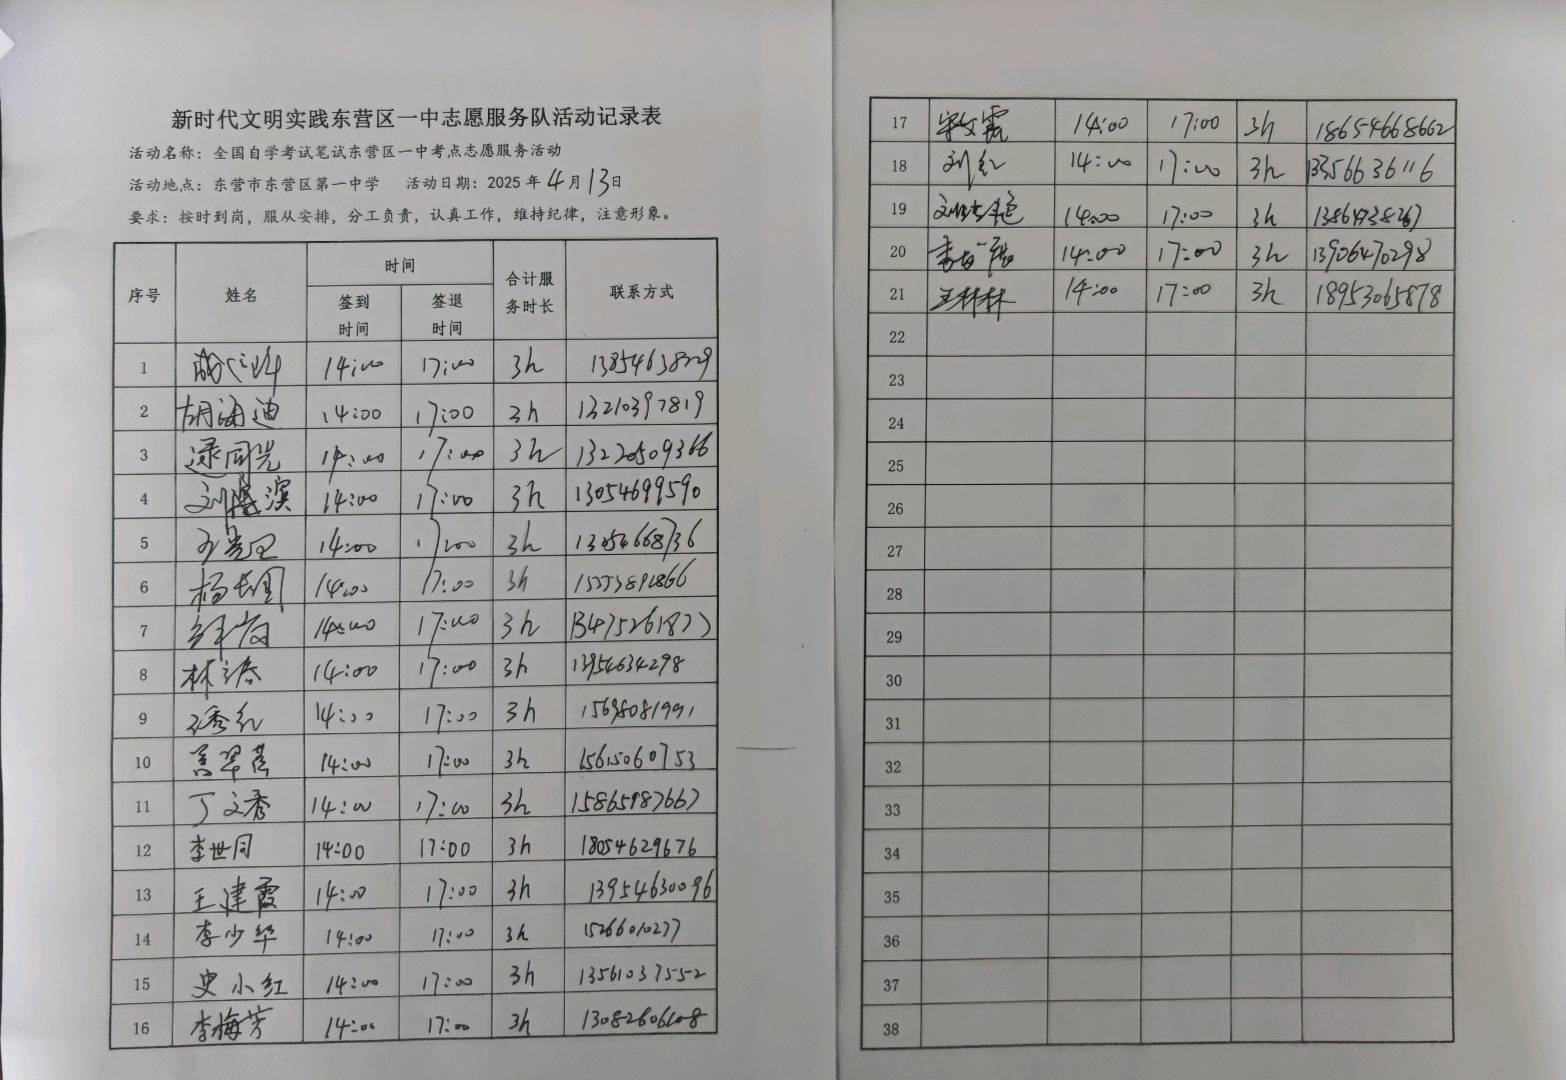 新时代文明实践东营区一中志愿服务队活动记录表
活动名称：全国自学考试笔试东营区一中考点志愿服务活动
活动地点：东营市东营区第一中学 活动日期：2025年4月13日
要求：按时到岗，服从安排，分工负责，认真工作，维持纪律，注意形象。
序号 姓名 时间 签到时间 签退时间 合计服务时长 联系方式
1 14:00 17:00 3h 13854638229
2 胡海迪 14:00 17:00 3h 13210397819
3 逯同光 14:00 17:00 3h 13220509366
4 14:00 17:00 3h 13054699590
5 14:00 17:00 3h
6 14:00 17:00 3h
7 14:00 17:00 3h 13475261877
8 14:00 17:00 3h 13954634298
9 14:00 17:00 3h 15698081991
10 14:00 17:00 3h 15615060753
11 丁文秀 14:00 17:00 3h 15865987667
12 李世同 14:00 17:00 3h 18054629676
13 王建霞 14:00 17:00 3h 13954630096
14 李少华 14:00 17:00 3h 15266010277
15 史小红 14:00 17:00 3h 13561037552
16 李梅芳 14:00 17:00 3h 13082606608
17 宋文霞 14:00 17:00 3h 18654668662
18 刘红 14:00 17:00 3h 13356636116
19 14:00 17:00 3h 13864738267
20 14:00 17:00 3h 13906470298
21 王林林 14:00 17:00 3h 18953065878
22
23
24
25
26
27
28
29
30
31
32
33
34
35
36
37
38